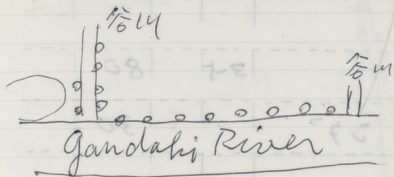 谷川
谷川
Gandaki River